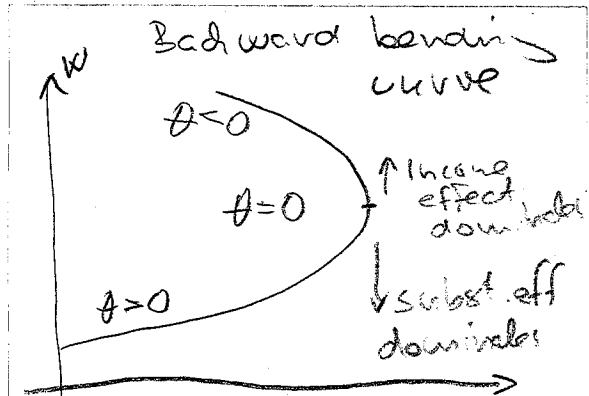 Backward bending
curve
W
θ<0
↑ Income
effect
dominates
θ=0
θ>0
↓ subst. eff
dominates